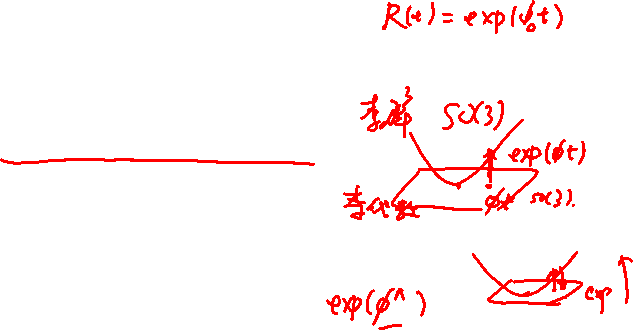 R(t) = exp(ϕ₀t)
李群 SO(3)
exp(ϕt)
李代数 ϕt so(3).
exp
exp(ϕ^)